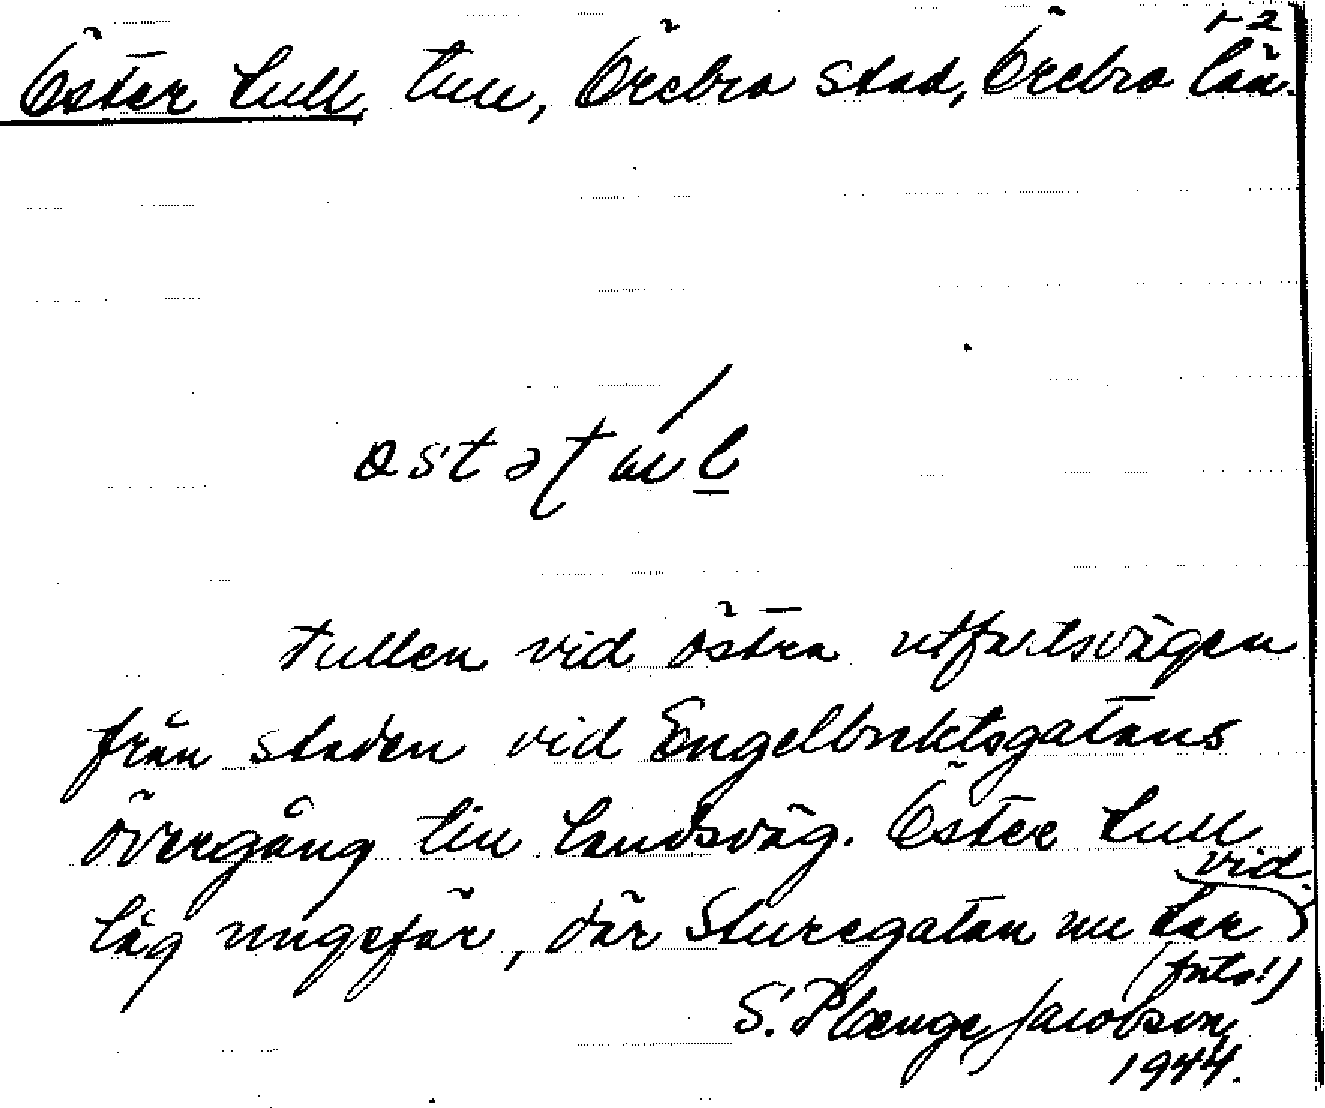 1-2
Öster tull, tull, Örebro stad, Örebro län.
Tullen vid östra utfartsvägen
från staden vid Engelbrektsgatans
övergång till landsväg. Öster tull
låg ungefär, där Sturegatan nu tar vid.
(foto!)
S. Plænge Jacobson
1944.